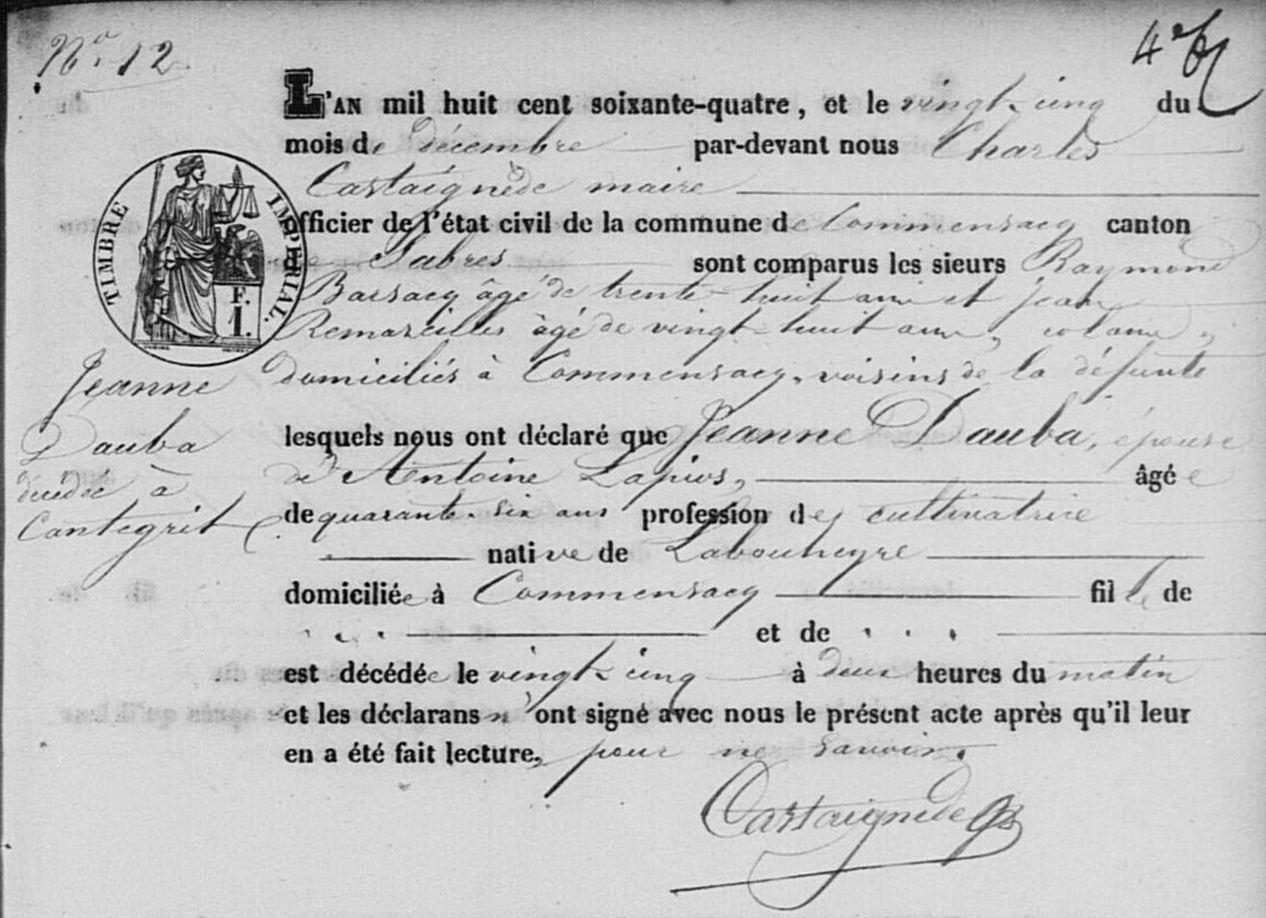 N.o 12
4e
L'AN mil huit cent soixante-quatre, et le vingt-cinq du
mois de décembre par-devant nous Charles
Castaignède maire
officier de l'état civil de la commune de Commensacq canton
de Sabres sont comparus les sieurs Raymond
Barsacq âgé de trente-huit ans et Jean
Remareilles âgé de vingt-huit ans, colons,
domiciliés à Commensacq, voisins de la défunte
lesquels nous ont déclaré que Jeanne Dauba, épouse
de Antoine Lapios, âgée
de quarante-six ans profession de cultivatrice
native de Labouheyre
domiciliée à Commensacq fille de
. . . et de . . .
est décédée le vingt-cinq à deux heures du matin
et les déclarans n'ont signé avec nous le présent acte après qu'il leur
en a été fait lecture, pour ne savoir.
Castaignède
TIMBRE IMPERIAL.
1 F.
Jeanne
Dauba
décédée à
Cantegrit